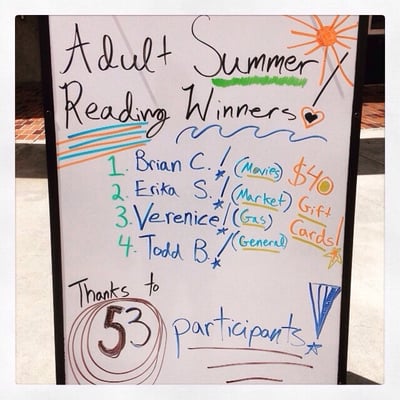 Adult Summer
Reading Winners!
1. Brian C.! (Movies) $40
2. Erika S.! (Market) Gift
3. Verenice! (Gas) Cards!
4. Todd B.! (General)
Thanks to
53 participants